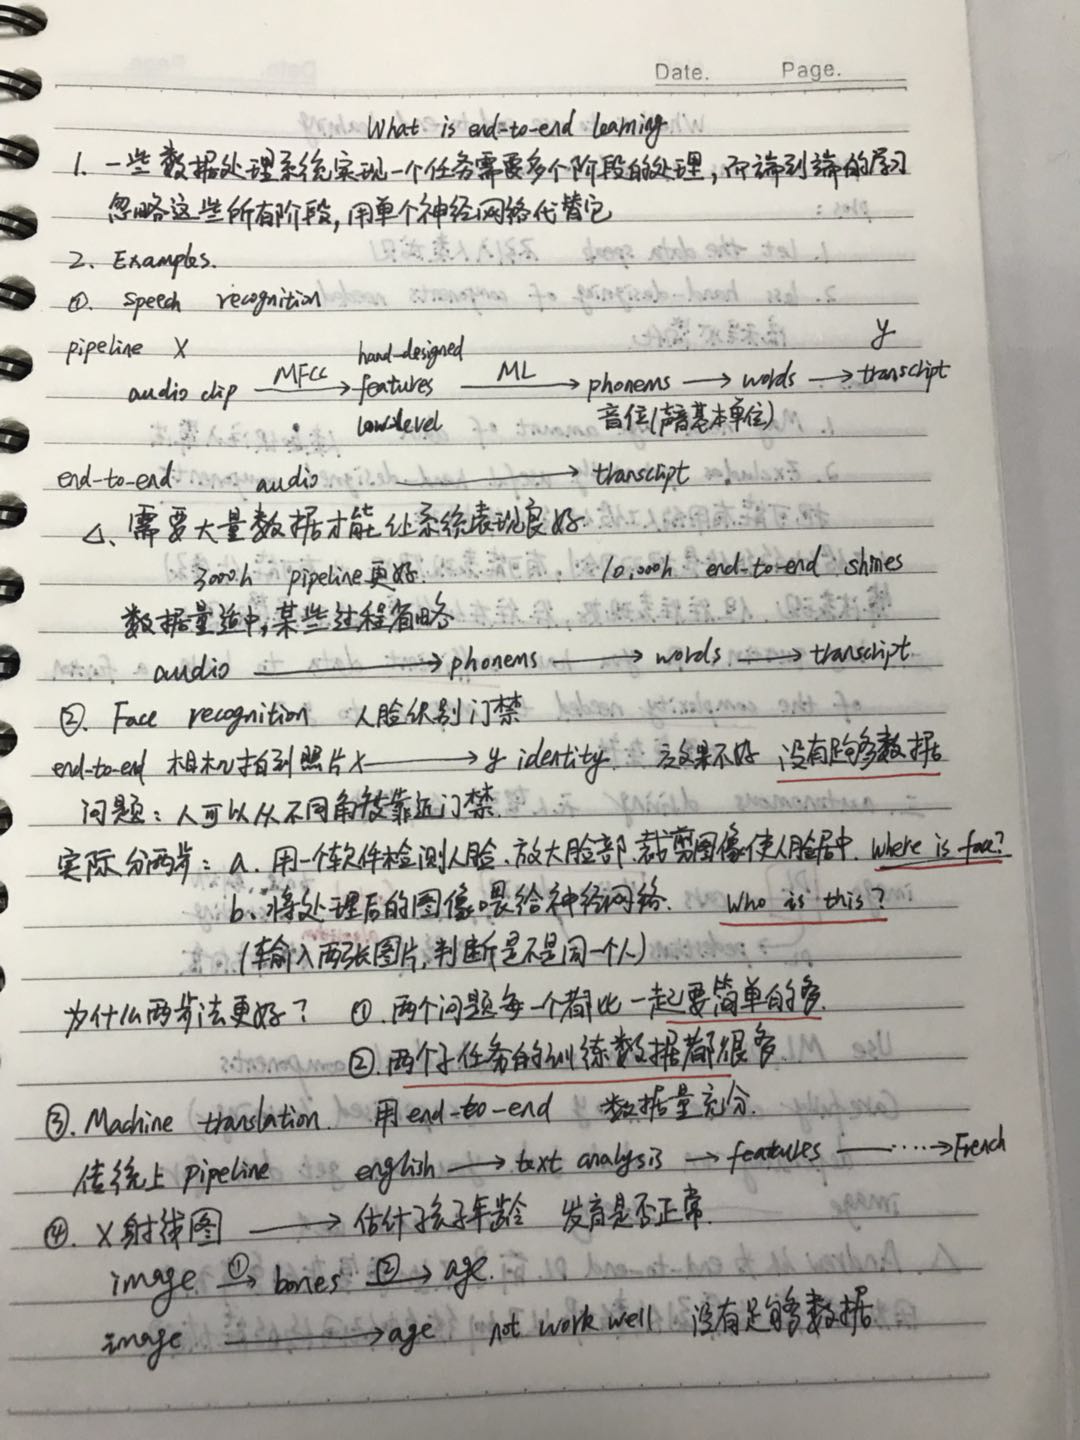 Date. Page.
What is end-to-end learning
1. 一些数据处理系统实现一个任务需要多个阶段的处理，而端到端的学习
忽略这些所有阶段，用单个神经网络代替它
2. Examples.
①. speech recognition
pipeline X hand-designed y
audio clip —MFCC→ features —ML→ phonems → words → transcript
low-level 音位(声音基本单位)
end-to-end audio → transcript
△、需要大量数据才能让系统表现良好
3000h pipeline更好. 10,000h end-to-end shines
数据量适中，某些过程省略
audio → phonems → words → transcript.
②. Face recognition 人脸识别门禁
end-to-end 相机拍到照片X → y identity. 效果不好 没有足够多数据
问题：人可以从不同角度靠近门禁.
实际分两步：a. 用一个软件检测人脸、放大脸部、裁剪图像使人脸居中. Where is face?
b、将处理后的图像喂给神经网络. Who is this?
(输入两张图片，判断是不是同一个人)
为什么两步法更好？ ①. 两个问题每一个都比一起要简单的多.
②. 两个子任务的训练数据都很多.
③. Machine translation. 用end-to-end 数据量充分.
传统上pipeline english → text analysis → features → ····→ French
④. X射线图 → 估计孩子年龄 发育是否正常.
image ①→ bones ②→ age.
image → age not work well 没有足够多数据